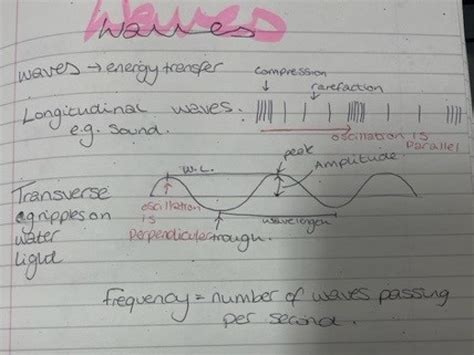 Waves
waves
waves → energy transfer
compression
rarefaction
Longitudinal waves:
e.g. sound.
oscillation is
parallel
peak
W.L.
Amplitude.
Transverse
eg ripples on
water
light
oscillation
is
perpendicular
trough.
wavelength
frequency = number of waves passing
per second.